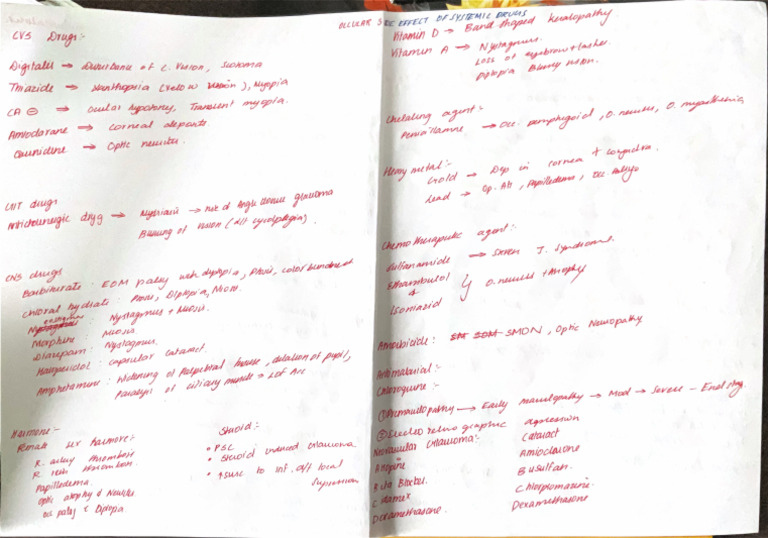 OCULAR SIDE EFFECT OF SYSTEMIC DRUGS
CVS Drugs:-
Digitalis → Disturbance of C. Vision, Scotoma
Thiazide → Xanthopsia (yellow vision), Myopia
CA ⊖ → Ocular hypotony, Transient myopia.
Amiodarone → Corneal deposits
→ Optic neuritis.
drugs
Anticholinergic drug → Mydriasis → risk of Angle closure glaucoma
Blurring of vision (d/t cycloplegia).
CNS drugs
Barbiturate: EOM palsy with diplopia, Ptosis, color blindness
Chloral hydrate: Ptosis, Diplopia, Miosis.
: Nystagmus + Miosis.
Morphine: Miosis
Diazepam: Nystagmus.
Haloperidol: Capsular cataract.
Amphetamine: Widening of Palpebral fissure, dilation of pupil,
Paralysis of ciliary muscle → LOF Acc
Harmone:-
Female sex harmone:-
R. artery thrombosis
R. vein thrombosis.
Papilledema.
Optic atrophy & Neuritis.
Occ palsy & Diplopia
Steroid:-
• PSC
• Steroid induced Glaucoma
• ↑susc to inf. d/t local
Supression
Vitamin D → Band shaped keratopathy.
Vitamin A → Nystagmus.
Loss of eyebrow + lashes
Diplopia Blurry vision.
Chelating agent:-
Penicillamine → Occ. pemphigoid, O. neuritis, O. myasthenia
Heavy metal:-
Gold → Dep in cornea + conjuctiva.
Lead → Op. At, Papilledema,
Chemotherapeutic agent:-
Sulfanamide → Steven J. Syndrome.
Ethambutol
&
Isoniazid } O. neuritis + Atrophy
Amoebicide: SMON, Optic Neuropathy
Antimalarial:-
Chloroquine:-
① → Early maculopathy → Mod → Severe → End stag.
② Electro retino graphic
Neovascular Glaucoma:-
Atropine
Beta Blocker.
Dexamethasone.
Cataract
Amiodarone
Busulfan.
Chlorpromazine.
Dexamethasone